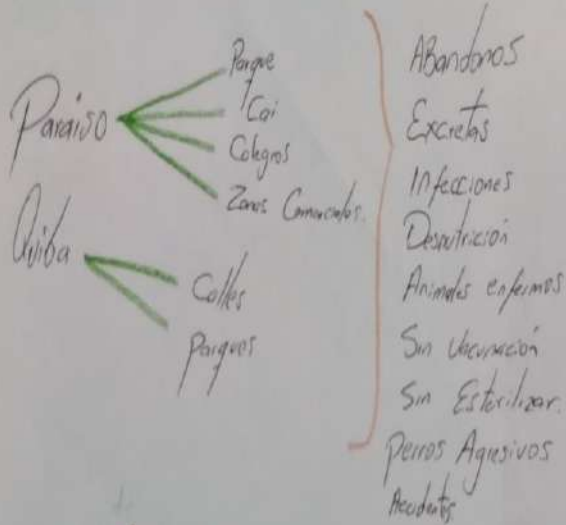 Paraiso
Parque
Cai
Colegios
Zonas Comerciales.
Quiba
Calles
Parques
Abandonos
Excretas
Infecciones
Desnutrición
Animales enfermos
Sin Vacunación
Sin Esterilizar.
Perros Agresivos
Accidentes